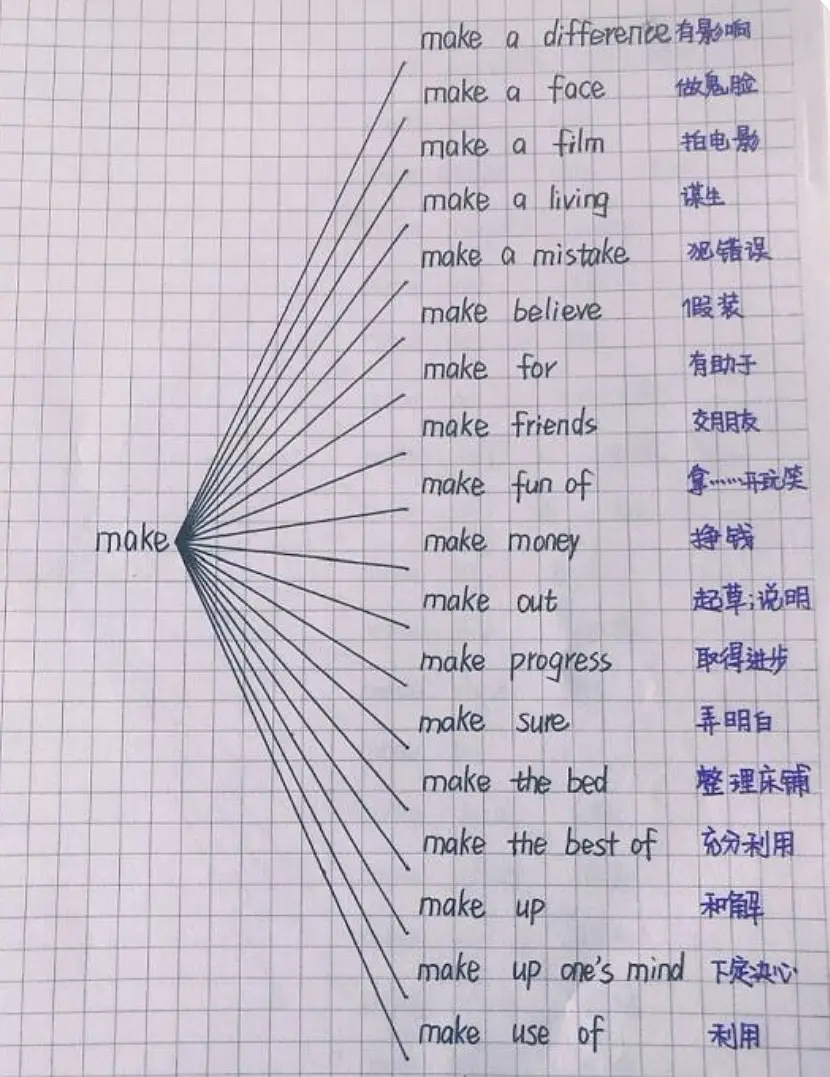 make a difference 有影响
make a face 做鬼脸
make a film 拍电影
make a living 谋生
make a mistake 犯错误
make believe 假装
make for 有助于
make friends 交朋友
make fun of 拿……开玩笑
make
make money 挣钱
make out 起草;说明
make progress 取得进步
make sure 弄明白
make the bed 整理床铺
make the best of 充分利用
make up 和解
make up one's mind 下定决心
make use of 利用